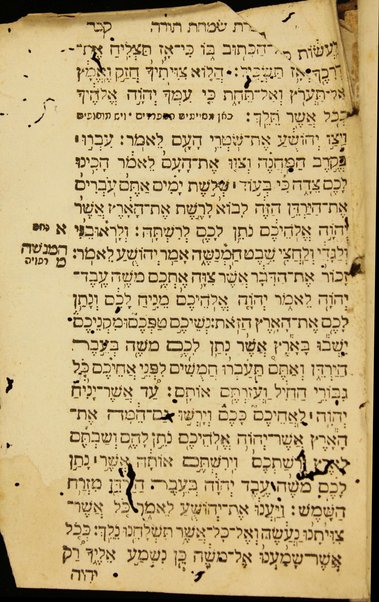 הפטרת שמחת תורה קנד
לַעֲשׂוֹת כְּכָל־הַכָּתוּב בּוֹ כִּי־אָז תַּצְלִיחַ אֶת־
דְּרָכֶךָ וְאָז תַּשְׂכִּיל׃ הֲלוֹא צִוִּיתִיךָ חֲזַק וֶאֱמָץ
אַל־תַּעֲרֹץ וְאַל־תֵּחָת כִּי עִמְּךָ יְהוָה אֱלֹהֶיךָ
בְּכֹל אֲשֶׁר תֵּלֵךְ׃ כאן מסיימים הספרדים
וַיְצַו יְהוֹשֻׁעַ אֶת־שֹׁטְרֵי הָעָם לֵאמֹר׃ עִבְרוּ
בְּקֶרֶב הַמַּחֲנֶה וְצַוּוּ אֶת־הָעָם לֵאמֹר הָכִינוּ
לָכֶם צֵדָה כִּי בְּעוֹד שְׁלֹשֶׁת יָמִים אַתֶּם עֹבְרִים
אֶת־הַיַּרְדֵּן הַזֶּה לָבוֹא לָרֶשֶׁת אֶת־הָאָרֶץ אֲשֶׁר
יְהוָה אֱלֹהֵיכֶם נֹתֵן לָכֶם לְרִשְׁתָּהּ׃ וְלָראוּבֵנִי
וְלַגָּדִי וְלַחֲצִי שֵׁבֶט הַמְנַשֶּׁה אָמַר יְהוֹשֻׁעַ לֵאמֹר׃
זָכוֹר אֶת־הַדָּבָר אֲשֶׁר צִוָּה אֶתְכֶם מֹשֶׁה עֶבֶד־
יְהוָה לֵאמֹר יְהוָה אֱלֹהֵיכֶם מֵנִיחַ לָכֶם וְנָתַן
לָכֶם אֶת־הָאָרֶץ הַזֹּאת׃ נְשֵׁיכֶם טַפְּכֶם וּמִקְנֵיכֶם
יֵשְׁבוּ בָּאָרֶץ אֲשֶׁר נָתַן לָכֶם מֹשֶׁה בְּעֵבֶר
הַיַּרְדֵּן וְאַתֶּם תַּעַבְרוּ חֲמֻשִׁים לִפְנֵי אֲחֵיכֶם כֹּל
גִּבּוֹרֵי הַחַיִל וַעֲזַרְתֶּם אוֹתָם׃ עַד אֲשֶׁר־יָנִיחַ
יְהוָה לַאֲחֵיכֶם כָּכֶם וְיָרְשׁוּ גַם־הֵמָּה אֶת־
הָאָרֶץ אֲשֶׁר־יְהוָה אֱלֹהֵיכֶם נֹתֵן לָהֶם וְשַׁבְתֶּם
לְאֶרֶץ יְרֻשַּׁתְכֶם וִירִשְׁתֶּם אוֹתָהּ אֲשֶׁר נָתַן
לָכֶם מֹשֶׁה עֶבֶד יְהוָה בְּעֵבֶר הַיַּרְדֵּן מִזְרַח
הַשָּׁמֶשׁ׃ וַיַּעֲנוּ אֶת־יְהוֹשֻׁעַ לֵאמֹר כֹּל אֲשֶׁר־
צִוִּיתָנוּ נַעֲשֶׂה וְאֶל־כָּל־אֲשֶׁר תִּשְׁלָחֵנוּ נֵלֵךְ׃ כְּכֹל
אֲשֶׁר־שָׁמַעְנוּ אֶל־מֹשֶׁה כֵּן נִשְׁמַע אֵלֶיךָ רַק
יהיה
המנשה